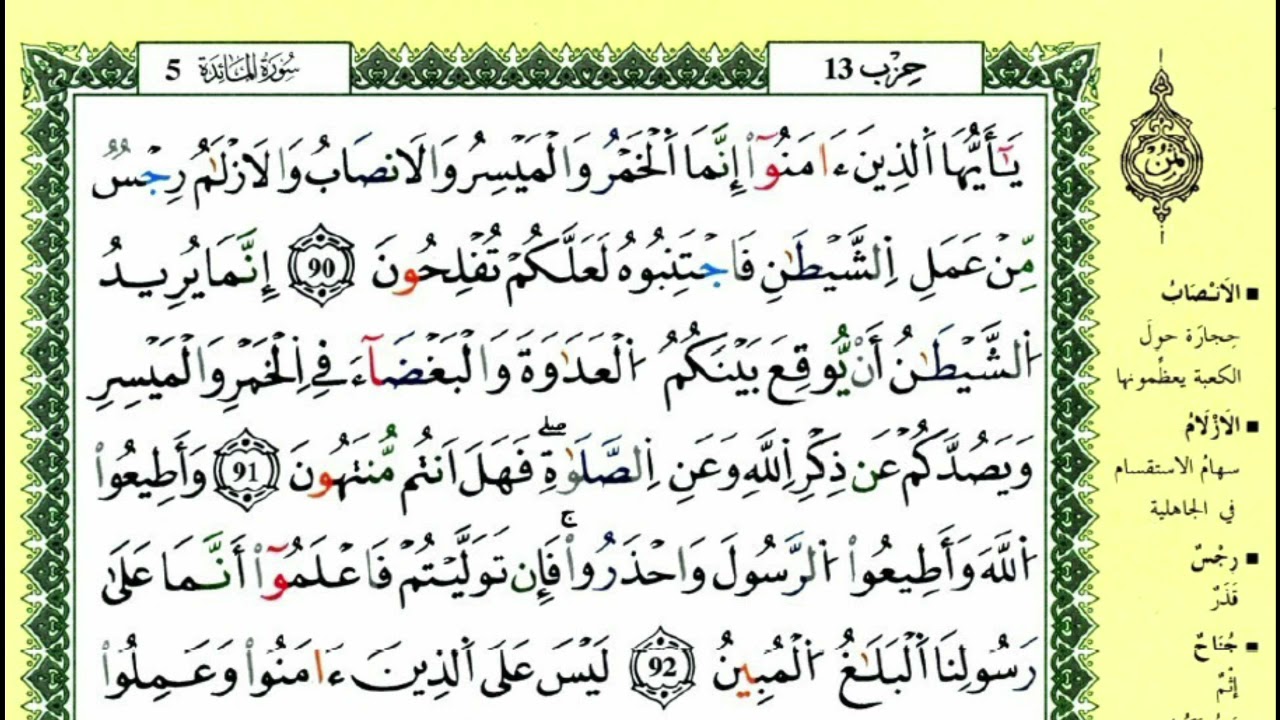 سُورَةُ المَائِدَة 5
حِزْب 13
يَٰٓأَيُّهَا اَ۬لذِينَ ءَامَنُوٓاْ إِنَّمَا اَ۬لْخَمْرُ وَالْمَيْسِرُ وَالَانصَابُ وَالَازْلَٰمُ رِجْسٌ
مِّنْ عَمَلِ اِ۬لشَّيْطَٰنِ فَاجْتَنِبُوهُ لَعَلَّكُمْ تُفْلِحُونَ 90 إِنَّمَا يُرِيدُ
اُ۬لشَّيْطَٰنُ أَنْ يُّوقِعَ بَيْنَكُمُ اُ۬لْعَدَٰوَةَ وَالْبَغْضَآءَ فِے اِ۬لْخَمْرِ وَالْمَيْسِرِ
وَيَصُدَّكُمْ عَن ذِكْرِ اِ۬للَّهِ وَعَنِ اِ۬لصَّلَوٰةِۖ فَهَلَ اَنتُم مُّنتَهُونَ 91 وَأَطِيعُواْ
اُ۬للَّهَ وَأَطِيعُواْ اُ۬لرَّسُولَ وَاحْذَرُواْۚ فَإِن تَوَلَّيْتُمْ فَاعْلَمُوٓاْ أَنَّمَا عَلَىٰ
رَسُولِنَا اَ۬لْبَلَٰغُ اُ۬لْمُبِينُ 92 لَيْسَ عَلَى اَ۬لذِينَ ءَامَنُواْ وَعَمِلُواْ
ثمن
الَانْصَابُ
حِجارَة حولَ
الكعبة يعظِّمونها
الَازْلَامُ
سهامُ الاستقسام
في الجاهلية
رِجْسٌ
قَذَرٌ
جُنَاحٌ
إثْمٌ